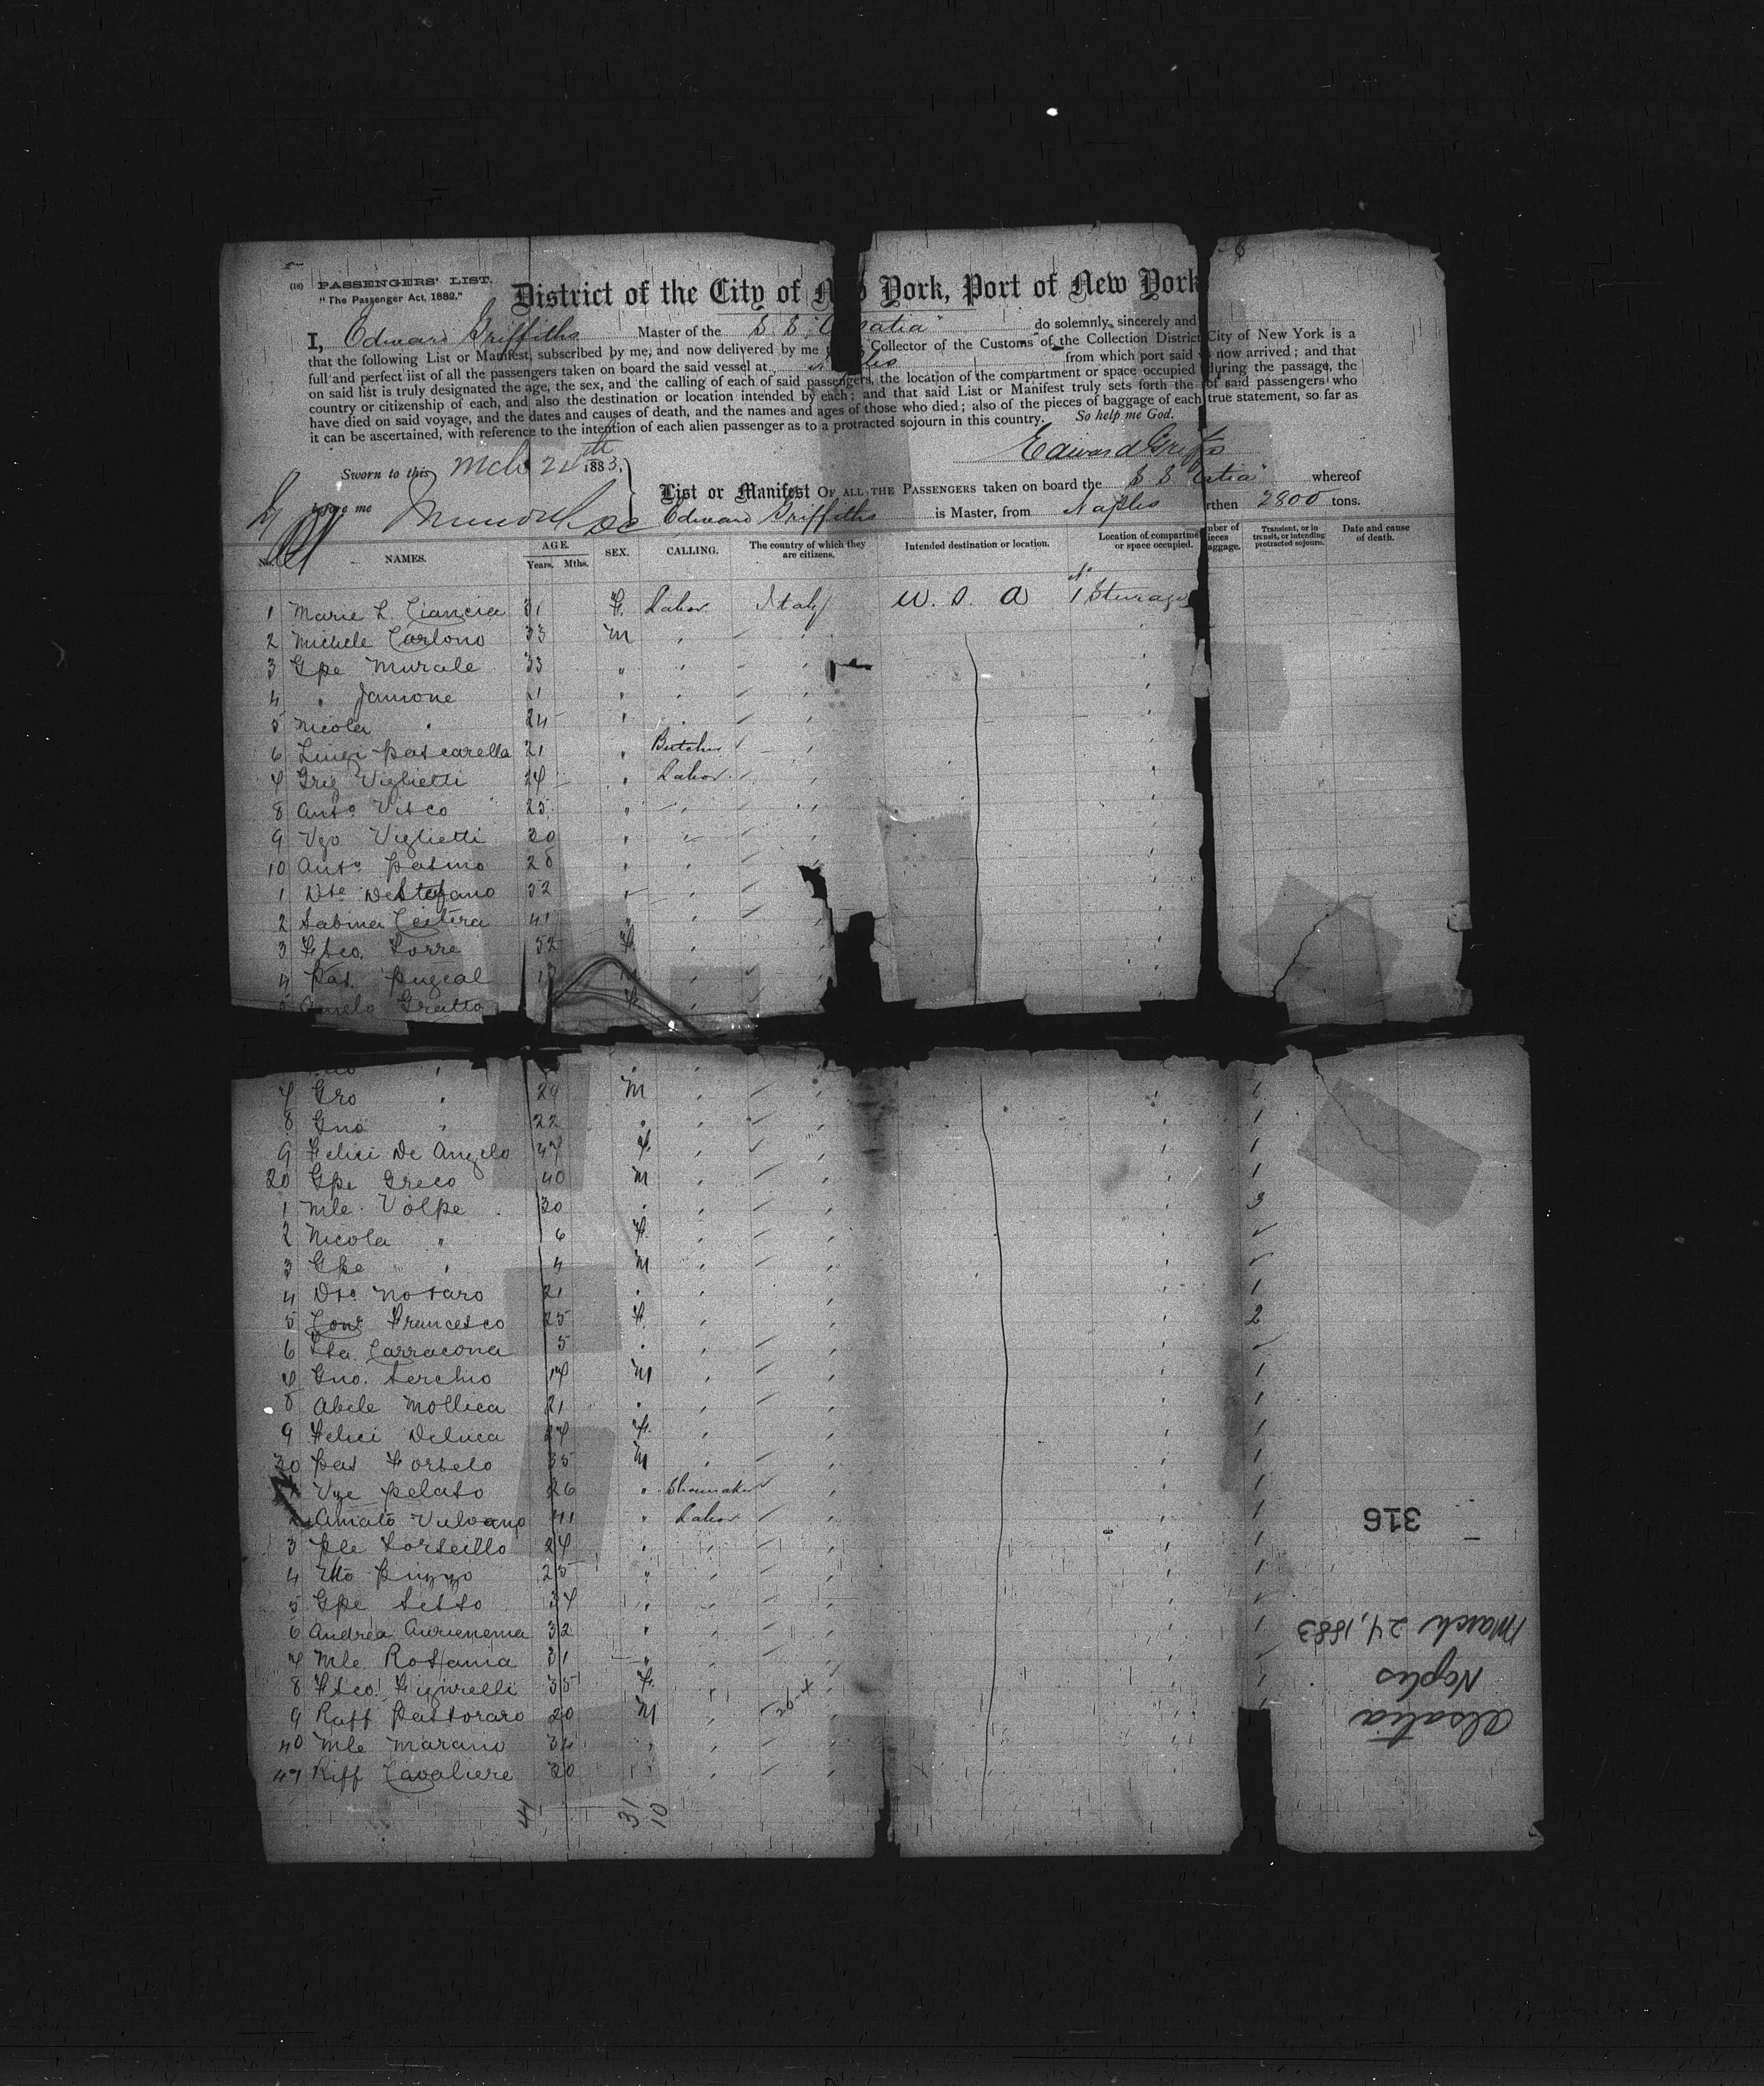 (18) PASSENGERS' LIST.
"The Passenger Act, 1882."
District of the City of New York, Port of New York
I, Edward Griffiths Master of the S S "Alsatia" do solemnly, sincerely and
that the following List or Manifest, subscribed by me, and now delivered by me Collector of the Customs of the Collection District City of New York is a
full and perfect list of all the passengers taken on board the said vessel at Naples from which port said now arrived; and that
on said list is truly designated the age, the sex, and the calling of each of said passengers, the location of the compartment or space occupied during the passage, the
country or citizenship of each, and also the destination or location intended by each; and that said List or Manifest truly sets forth the of said passengers who
have died on said voyage, and the dates and causes of death, and the names and ages of those who died; also of the pieces of baggage of each true statement, so far as
it can be ascertained, with reference to the intention of each alien passenger as to a protracted sojourn in this country. So help me God.
Edward Griffiths
Sworn to this Mch 24th 1883,
before me
List or Manifest OF ALL THE PASSENGERS taken on board the S S "Alsatia" whereof
Edward Griffiths is Master, from Naples rthen 2800 tons.
No. NAMES. AGE. Years. Mths. SEX. CALLING. The country of which they are citizens. Intended destination or location. Location of compartment or space occupied. Number of pieces baggage. Transient, or in transit, or intending protracted sojourn. Date and cause of death.
1 Marie L. Ciancia 31 F. Labor. Italy U. S. A No 1 Sturage
2 Michele Carlono 33 M
3 Gpe Murale 33 "
4 " Jamone 21 "
5 Nicola " 24 "
6 Luigi Pascarella 21 " Butcher
7 Grig Viglietti 24 " Labor.
8 Anto Visco 25 "
9 Vgo Viglietti 30 "
10 Anto Palmo 28 "
1 Dte DeStefano 52
2 Sabina Ceitera 41 "
3 Fsco. Torre 52 F.
4 Pas. Pugeal M
5 Gratto F
7 Gro " 29 M
8 Gno " 22 "
9 Felici De Angelo 37 F. 1
20 Gpe Greco 40 M 1
1 Mle. Volpe 30 " 3
2 Nicola " 6 F.
3 Gpe " 4 M
4 Dto Notaro 21 " 1
5 Conr Francesco 25 F. 2
6 Carracona 5 "
7 Gno. Serchio 17 M 1
8 Abele Mollica 21 " 1
9 Felici Deluca 27 F. 1
30 Pas Forselo 35 M 1
1 Vze Pelato 26 " Shoemaker 1
2 Amato Vulvano 41 " Labor 1
3 Ple Torseillo 27 "
4 Etto Puzzo 25 " 1
5 Gpe Sesso 37 "
6 Andrea Aurienema 32 " 1
7 Mle. Rossania 31 "
8 Fsco. Figurelli 35 F. 1
9 Raff Pastoraro 20 M
40 Mle Marano 34 "
41 Riff Cavaliere 30
41 31 10
316
March 24, 1883
Naples
Alsatia